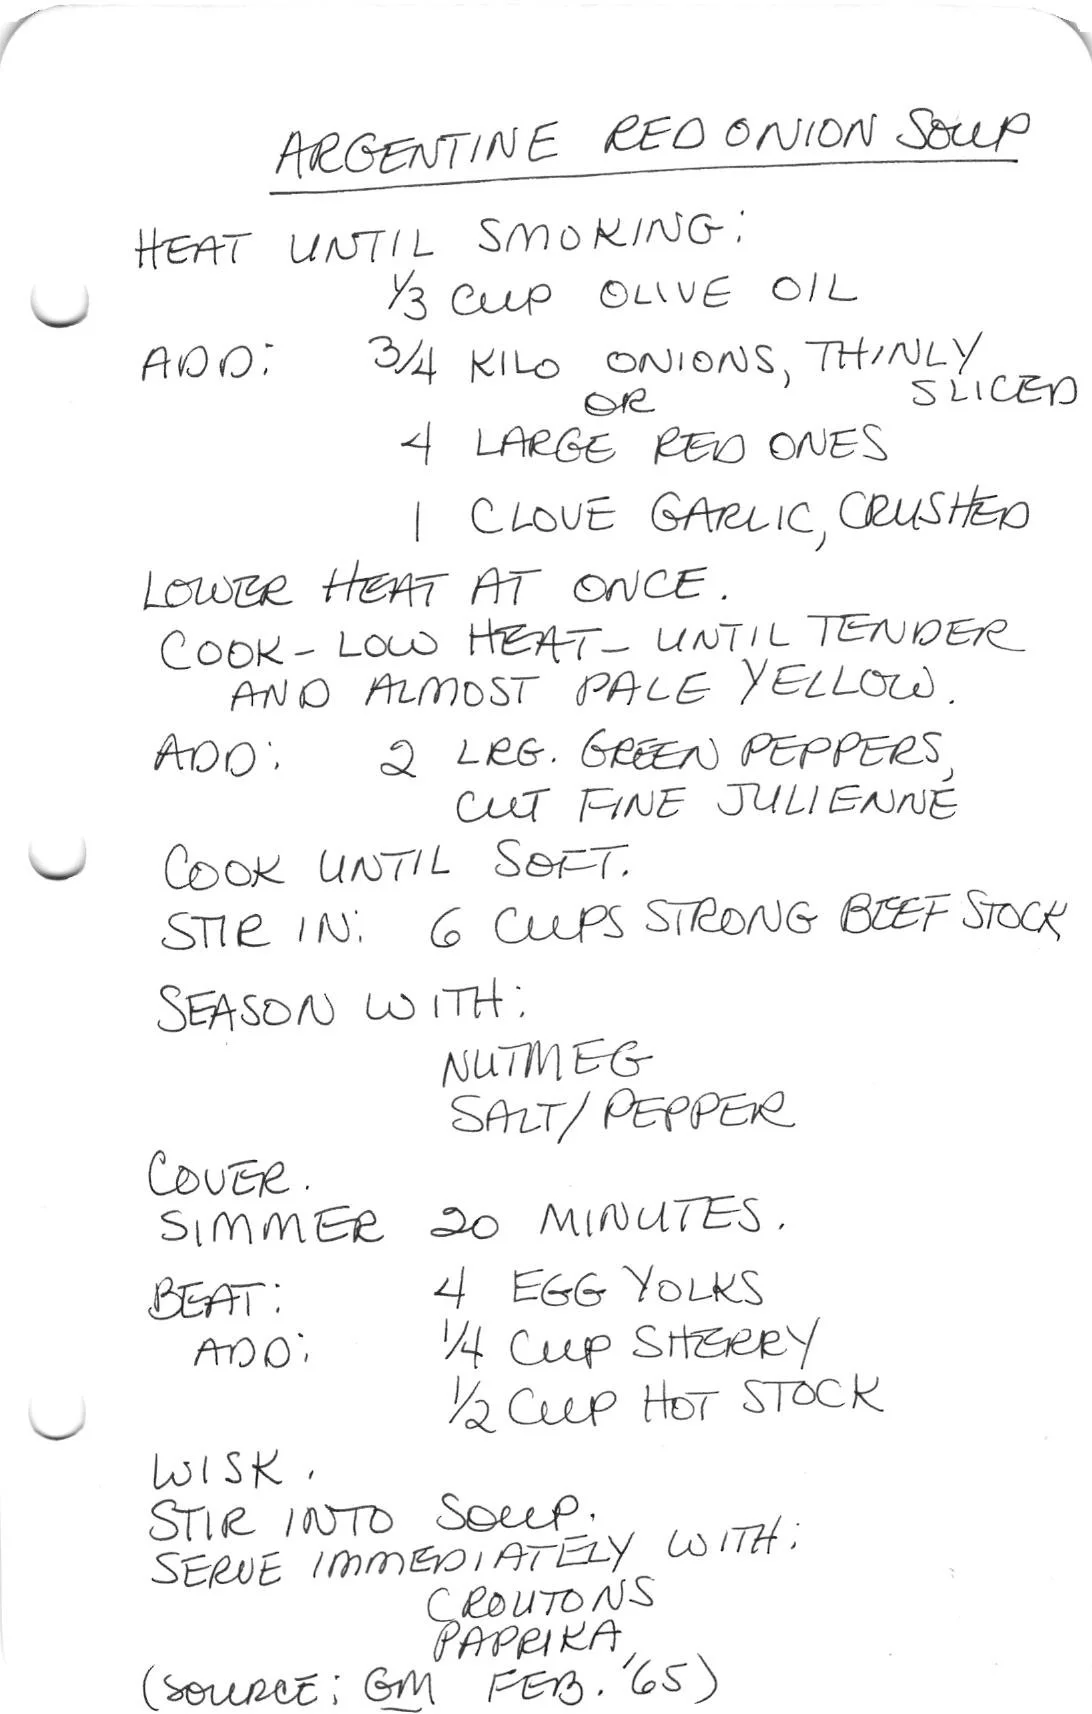 ARGENTINE RED ONION SOUP
HEAT UNTIL SMOKING:
1/3 CUP OLIVE OIL
ADD: 3/4 KILO ONIONS, THINLY
SLICED
OR
4 LARGE RED ONES
1 CLOVE GARLIC, CRUSHED
LOWER HEAT AT ONCE.
COOK - LOW HEAT - UNTIL TENDER
AND ALMOST PALE YELLOW.
ADD: 2 LRG. GREEN PEPPERS,
CUT FINE JULIENNE
COOK UNTIL SOFT.
STIR IN: 6 CUPS STRONG BEEF STOCK
SEASON WITH:
NUTMEG
SALT/PEPPER
COVER.
SIMMER 20 MINUTES.
BEAT: 4 EGG YOLKS
ADD: 1/4 CUP SHERRY
1/2 CUP HOT STOCK
WISK.
STIR INTO SOUP.
SERVE IMMEDIATELY WITH:
CROUTONS
PAPRIKA
(SOURCE: GM FEB. '65)